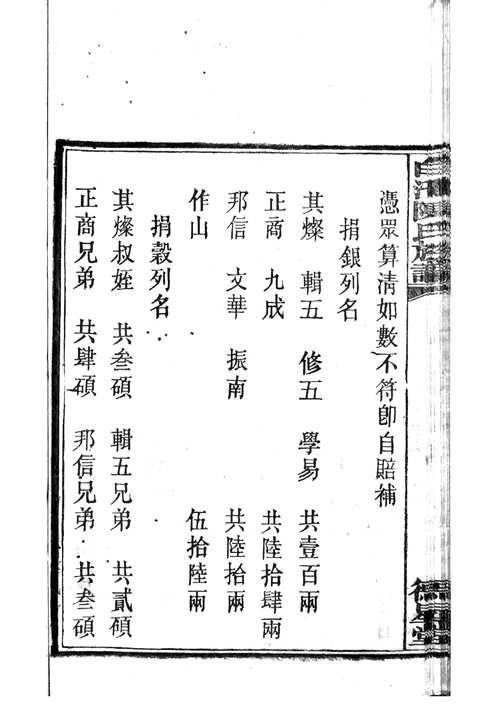 憑眾算清如數不符卽自賠補
捐銀列名
其燦 輯五 修五 學易 共壹百兩
正商 九成 共陸拾肆兩
邦信 文華 振南 共陸拾兩
作山 伍拾陸兩
捐穀列名
其燦叔姪 共叁碩 輯五兄弟 共貳碩
正商兄弟 共肆碩 邦信兄弟 共叁碩